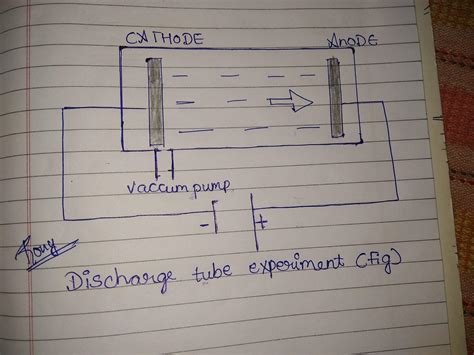 CATHODE
ANODE
vaccum pump
- +
Discharge tube experiment (fig)